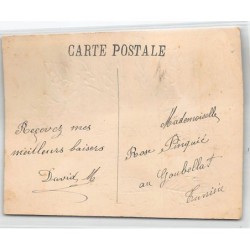 CARTE POSTALE
Recevez mes
meilleurs baisers
David. M
Mademoiselle
Rose Pinquié
au Goubellat
Tunisie